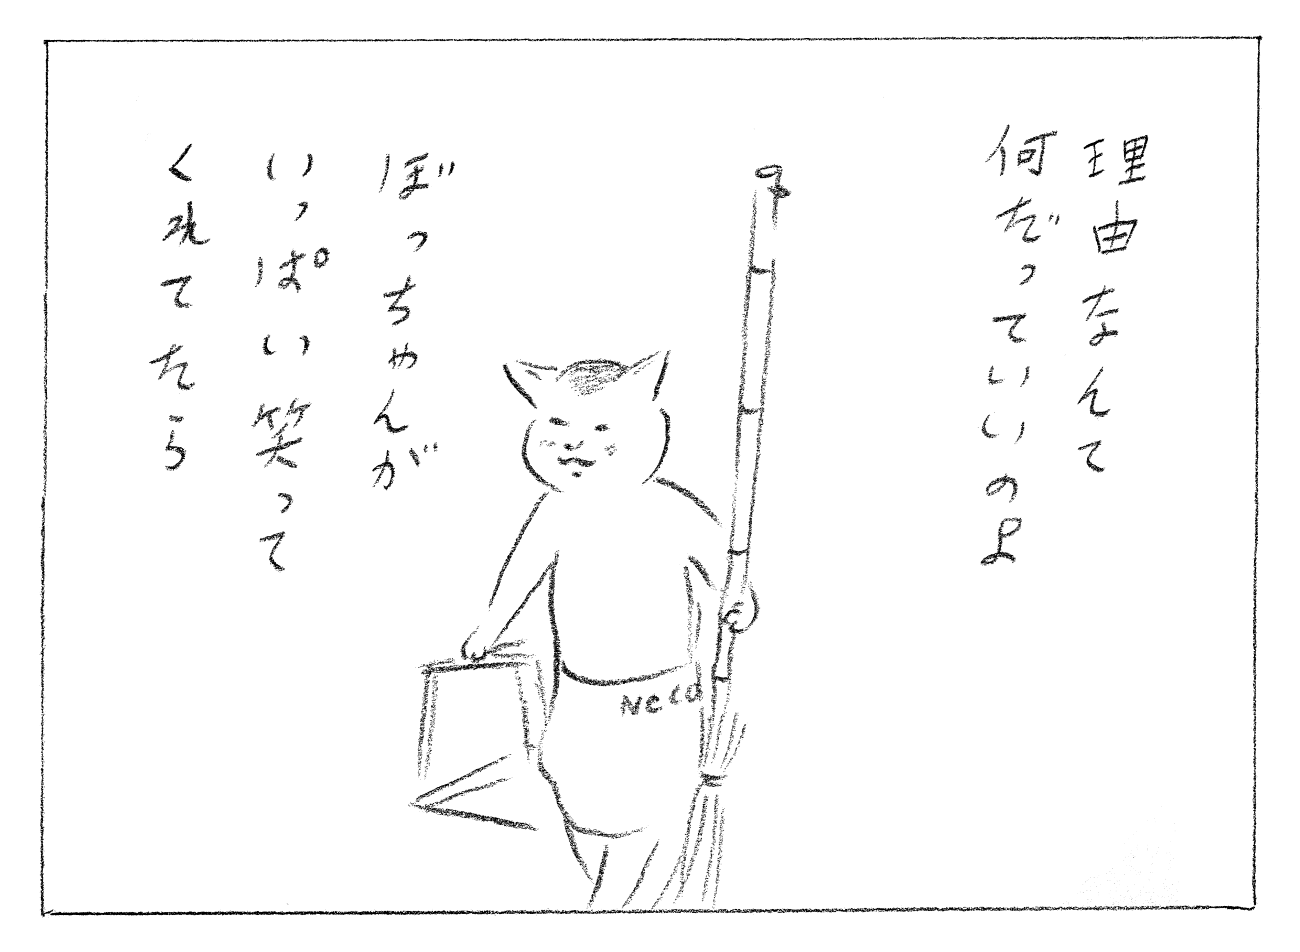 理由なんて
何だっていいのよ
ぼっちゃんが
いっぱい笑って
くれてたら
Neco